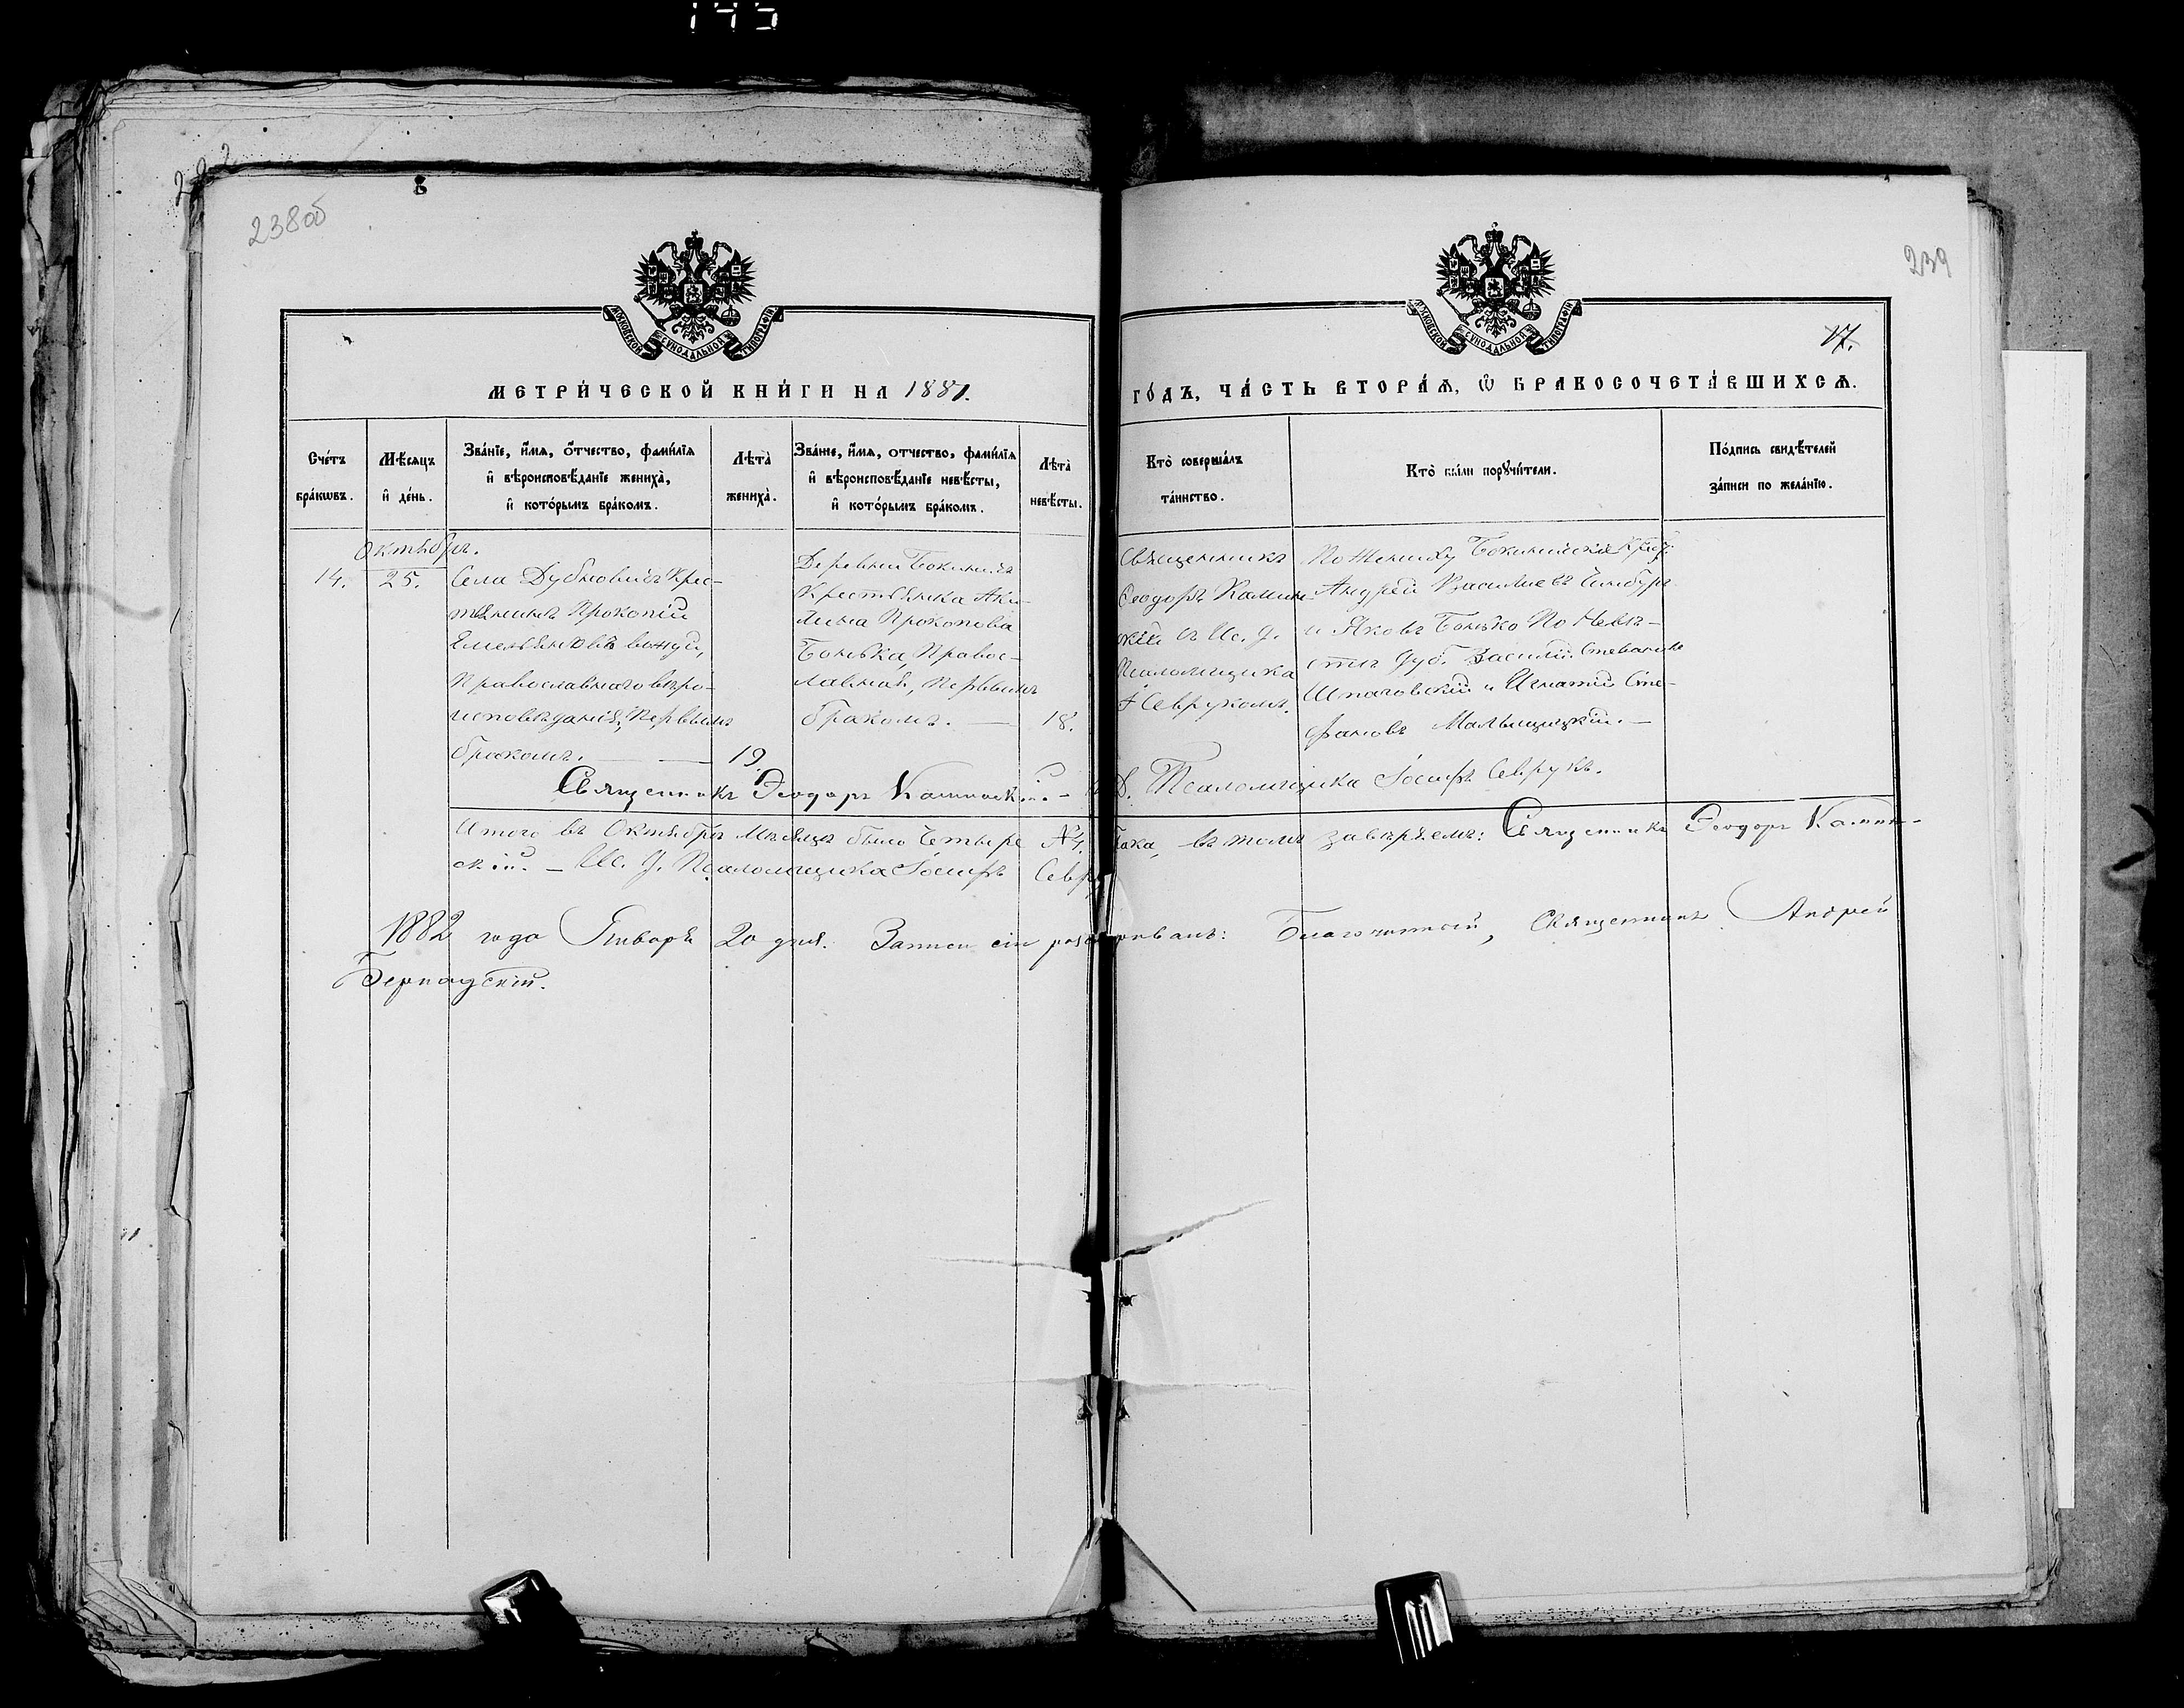 145
282
238об
239
17.
МОСКОВСКОЙ СѴНОДАЛЬНОЙ ТИПОГРАФІИ
МОСКОВСКОЙ СѴНОДАЛЬНОЙ ТИПОГРАФІИ
МЕТРИ́ЧЕСКОЙ КНИ́ГИ НА 1881.
ГО́ДЪ, ЧА́СТЬ ВТОРА́Ѧ, Ѽ БРАКОСОЧЕТА́ВШИХСѦ.
Сче́тъ
бра́кѡвъ.
Мѣ́сяцъ
и҆ де́нь.
Зва́нїе, и҆́мя, ѻ҆́тчество, фами́лїя
и҆ вѣроисповѣ́данїе жениха̀,
и҆ кото́рымъ бра́комъ.
Лѣта̀
жениха̀.
Зва́нїе, и҆́мя, ѻ҆тчество, фами́лїя
и҆ вѣроисповѣ́данїе невѣ́сты,
и҆ кото́рымъ бра́комъ.
Лѣта̀
невѣ́сты.
Кто̀ соверша́лъ
та́инство.
Кто̀ бы́ли порꙋчи́тели.
По́дпись свидѣ́телей
за́писи по жела́нїю.
Октябрь.
14.
25.
Села Дубновичъ Крес-
тьянинъ Прокопій
Емельяновъ
Православнаго вѣро-
исповѣданія, первымъ
бракомъ.
19.
Деревни Бокиничъ
Крестьянка Аку-
лина Прокопова
Бонька, Правос-
лавная, первымъ
бракомъ.
18.
Священникъ
Ѳеодоръ Камин-
скій съ Ис. д.
Псаломщика
І Севрукомъ.
По Жениху
Андрей Василіевъ
и Яковъ Бонько По Невѣ-
стѣ Дуб. Василій
и Игнатій Сте-
фановъ
Священникъ Ѳеодоръ Каминскій. –
Д. Псаломщика Іосифъ Севрукъ.
Итого въ Октябрѣ Мѣсяцѣ было Четыре №4. брака, въ томъ завѣряемъ: Священникъ Ѳеодоръ Камин-
скій. – Ис. д. Псаломщика Іосифъ Севрукъ
1882 года Января 20 дня. Записи сіи разсматривалъ: Благочинный, Священникъ Андрей
Бернадскій.